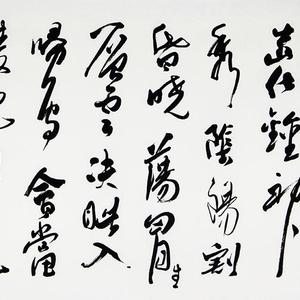 造化鍾神
秀陰陽割
昏曉蕩胸生
層雲決眥入
歸鳥會當